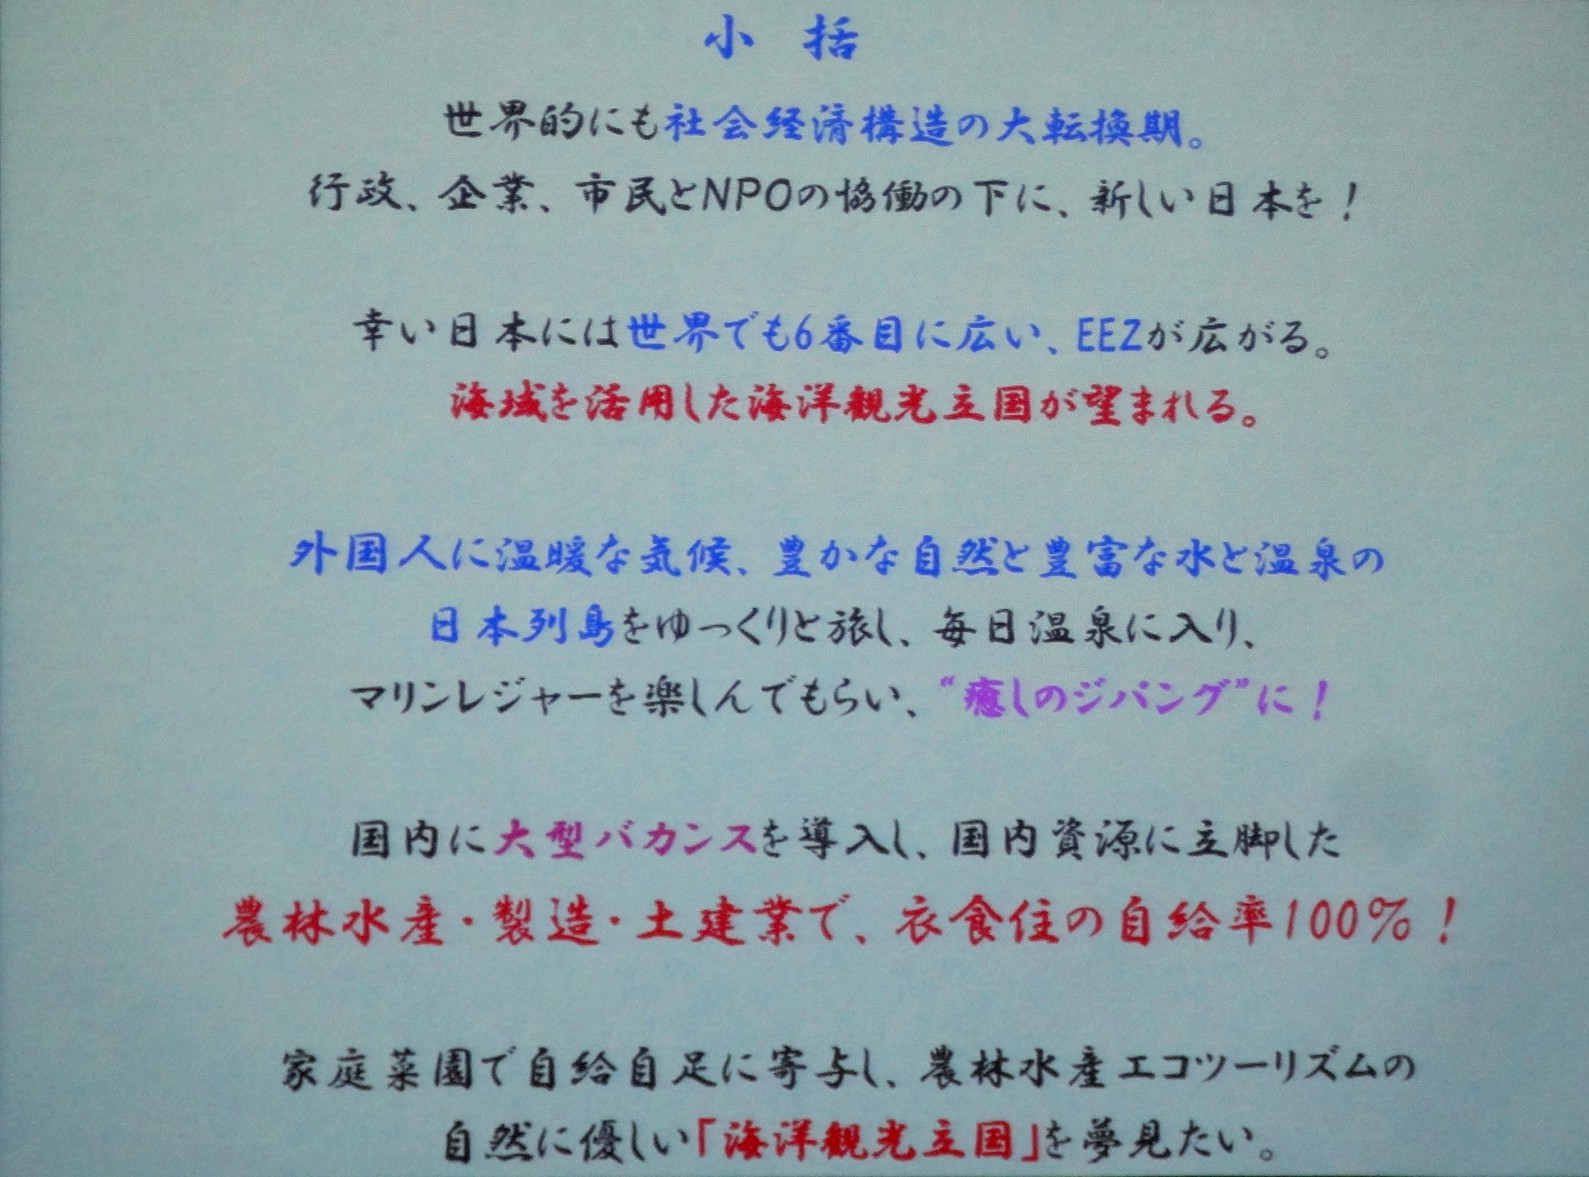 小 括
世界的にも社会経済構造の大転換期。
行政、企業、市民とNPOの協働の下に、新しい日本を!
幸い日本には世界でも6番目に広い、EEZが広がる。
海域を活用した海洋観光立国が望まれる。
外国人に温暖な気候、豊かな自然と豊富な水と温泉の
日本列島をゆっくりと旅し、毎日温泉に入り、
マリンレジャーを楽しんでもらい、“癒しのジパング”に!
国内に大型バカンスを導入し、国内資源に立脚した
農林水産・製造・土建業で、衣食住の自給率100%!
家庭菜園で自給自足に寄与し、農林水産エコツーリズムの
自然に優しい「海洋観光立国」を夢見たい。